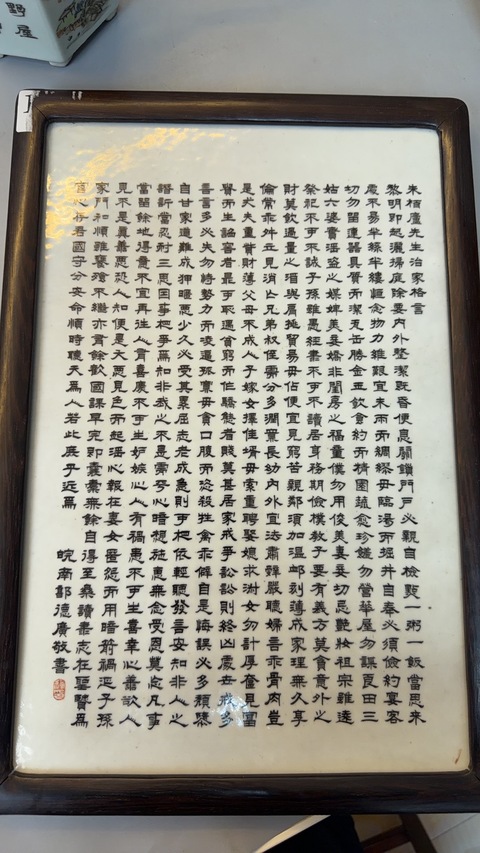 朱柏廬先生治家格言
黎明即起灑掃庭除要內外整潔既昏便息關鎖門戶必親自檢點一粥一飯當思來
處不易半絲半縷恒念物力維艱宜未雨而綢繆毋臨渴而掘井自奉必須儉約宴客
切勿留連器具質而潔瓦缶勝金玉飲食約而精園蔬愈珍饈勿營華屋勿謀良田三
姑六婆實淫盜之媒婢美妾嬌非閨房之福童僕勿用俊美妻妾切忌艷妝祖宗雖遠
祭祀不可不誠子孫雖愚經書不可不讀居身務期儉樸教子要有義方莫貪意外之
財莫飲過量之酒與肩挑貿易毋佔便宜見窮苦親鄰須加溫卹刻薄成家理無久享
倫常乖舛立見消亡兄弟叔侄需分多潤寡長幼內外宜法肅辭嚴聽婦言乖骨肉豈
是丈夫重貲財薄父母不成人子嫁女擇佳壻毋索重聘娶媳求淑女勿計厚奩見富
貴而生諂容者最可恥遇貧窮而作驕態者賤莫甚居家戒爭訟訟則終凶處世戒多
言言多必失勿恃勢力而凌逼孤寡毋貪口腹而恣殺牲禽乖僻自是悔誤必多頹隳
自甘家道難成狎暱惡少久必受其累屈志老成急則可相依輕聽發言安知非人之
譖訴當忍耐三思因事相爭焉知非我之不是需平心暗想施惠無念受恩莫忘凡事
當留餘地得意不宜再往人有喜慶不可生妒嫉心人有禍患不可生喜幸心善欲人
見不是真善惡恐人知便是大惡見色而起淫心報在妻女匿怨而用暗箭禍延子孫
家門和順雖饔飧不繼亦有餘歡國課早完即囊橐無餘自得至樂讀書志在聖賢為
官心存君國守分安命順時聽天為人若此庶乎近焉
皖南德廣敬書
野屋